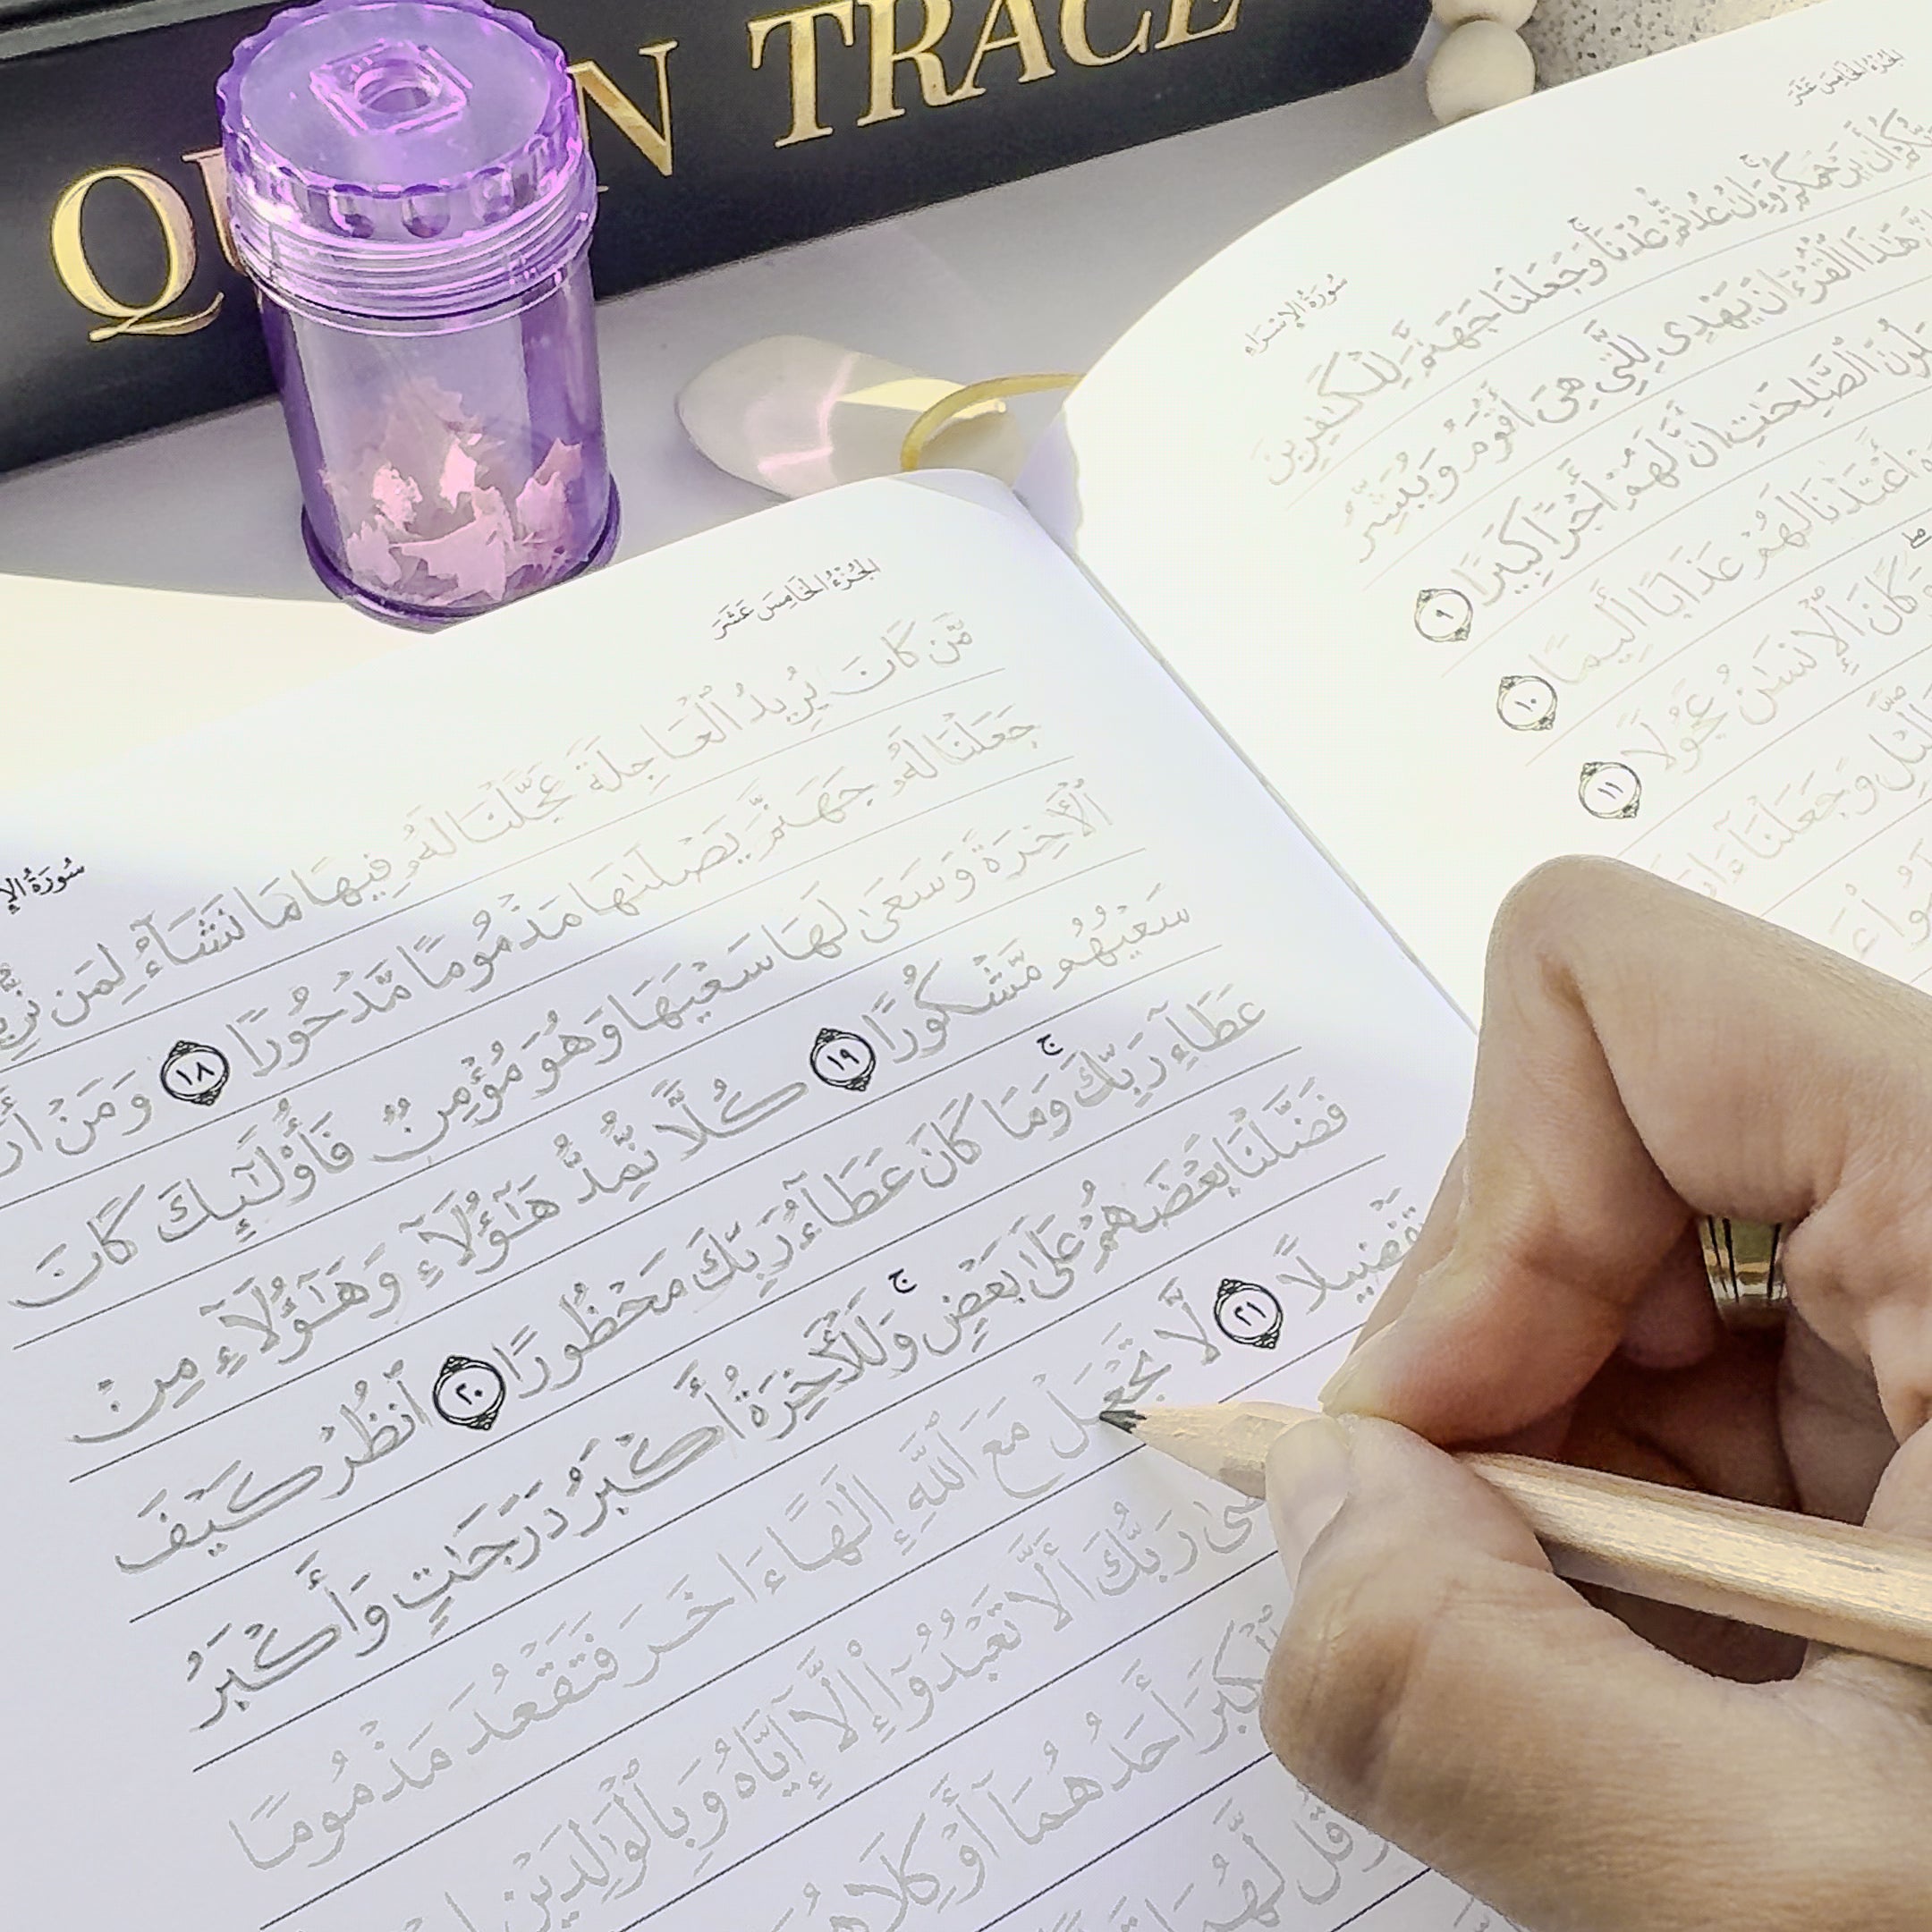 QU N TRACE
الجزء الخامس عشر
سورة الإسراء
يرحمكم وإن عدتم عدنا ۚ وجعلنا جهنم للكافرين
هَٰذَا ٱلْقُرْءَانَ يَهْدِى لِلَّتِى هِىَ أَقْوَمُ وَيُبَشِّرُ
ٱلصَّٰلِحَٰتِ أَنَّ لَهُمْ أَجْرًا كَبِيرًا ٩
أَعْتَدْنَا لَهُمْ عَذَابًا أَلِيمًا ١٠
وَكَانَ ٱلْإِنسَٰنُ عَجُولًا ١١
وَجَعَلْنَا
الجُزْءُ الخَامِسَ عَشَرَ
سُورَةُ
مَّن كَانَ يُرِيدُ ٱلْعَاجِلَةَ عَجَّلْنَا لَهُۥ فِيهَا مَا نَشَآءُ لِمَن
جَعَلْنَا لَهُۥ جَهَنَّمَ يَصْلَىٰهَا مَذْمُومًا مَّدْحُورًا ١٨ وَمَنْ
ٱلْأَخِرَةَ وَسَعَىٰ لَهَا سَعْيَهَا وَهُوَ مُؤْمِنٌ فَأُو۟لَٰٓئِكَ كَانَ
سَعْيُهُم مَّشْكُورًا ١٩ كُلًّا نُّمِدُّ هَٰٓؤُلَآءِ وَهَٰٓؤُلَآءِ مِنْ
عَطَآءِ رَبِّكَ ۚ وَمَا كَانَ عَطَآءُ رَبِّكَ مَحْظُورًا ٢٠ ٱنظُرْ كَيْفَ
فَضَّلْنَا بَعْضَهُمْ عَلَىٰ بَعْضٍ ۚ وَلَلْأَخِرَةُ أَكْبَرُ دَرَجَٰتٍ وَأَكْبَرُ
تَفْضِيلًا ٢١ لَّا تَجْعَلْ مَعَ ٱللَّهِ إِلَٰهًا ءَاخَرَ فَتَقْعُدَ مَذْمُومًا
رَبُّكَ أَلَّا تَعْبُدُوٓا۟ إِلَّآ إِيَّاهُ وَبِٱلْوَٰلِدَيْنِ
ٱلْكِبَرَ أَحَدُهُمَآ أَوْ كِلَاهُمَا
قُل لَّهُمَا